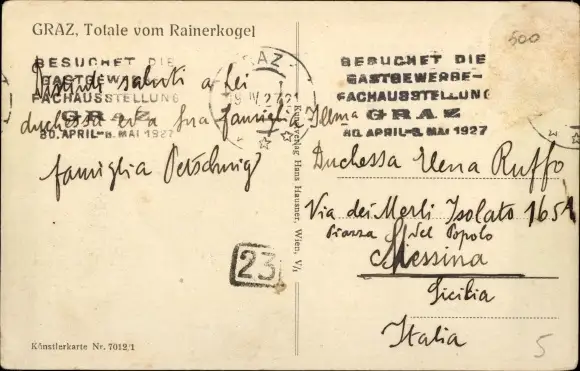 GRAZ, Totale vom Rainerkogel
500
BESUCHET DIE
GASTGEWERBE-
FACHAUSSTELLUNG
GRAZ
30. APRIL-8. MAI 1927
GRAZ
9.IV.27 21
BESUCHET DIE
GASTGEWERBE-
FACHAUSSTELLUNG
GRAZ
30. APRIL-8. MAI 1927
saluti a lei
duchessa ed a sua famiglia
famiglia Petschnig
23
Künstlerkarte Nr. 7012/1
Kunstverlag Hans Hausner, Wien, V/1
Illma
Duchessa Elena Ruffo
Via dei Merli Isolato 165A
Piazza del Popolo
Messina
Sicilia
Italia
5